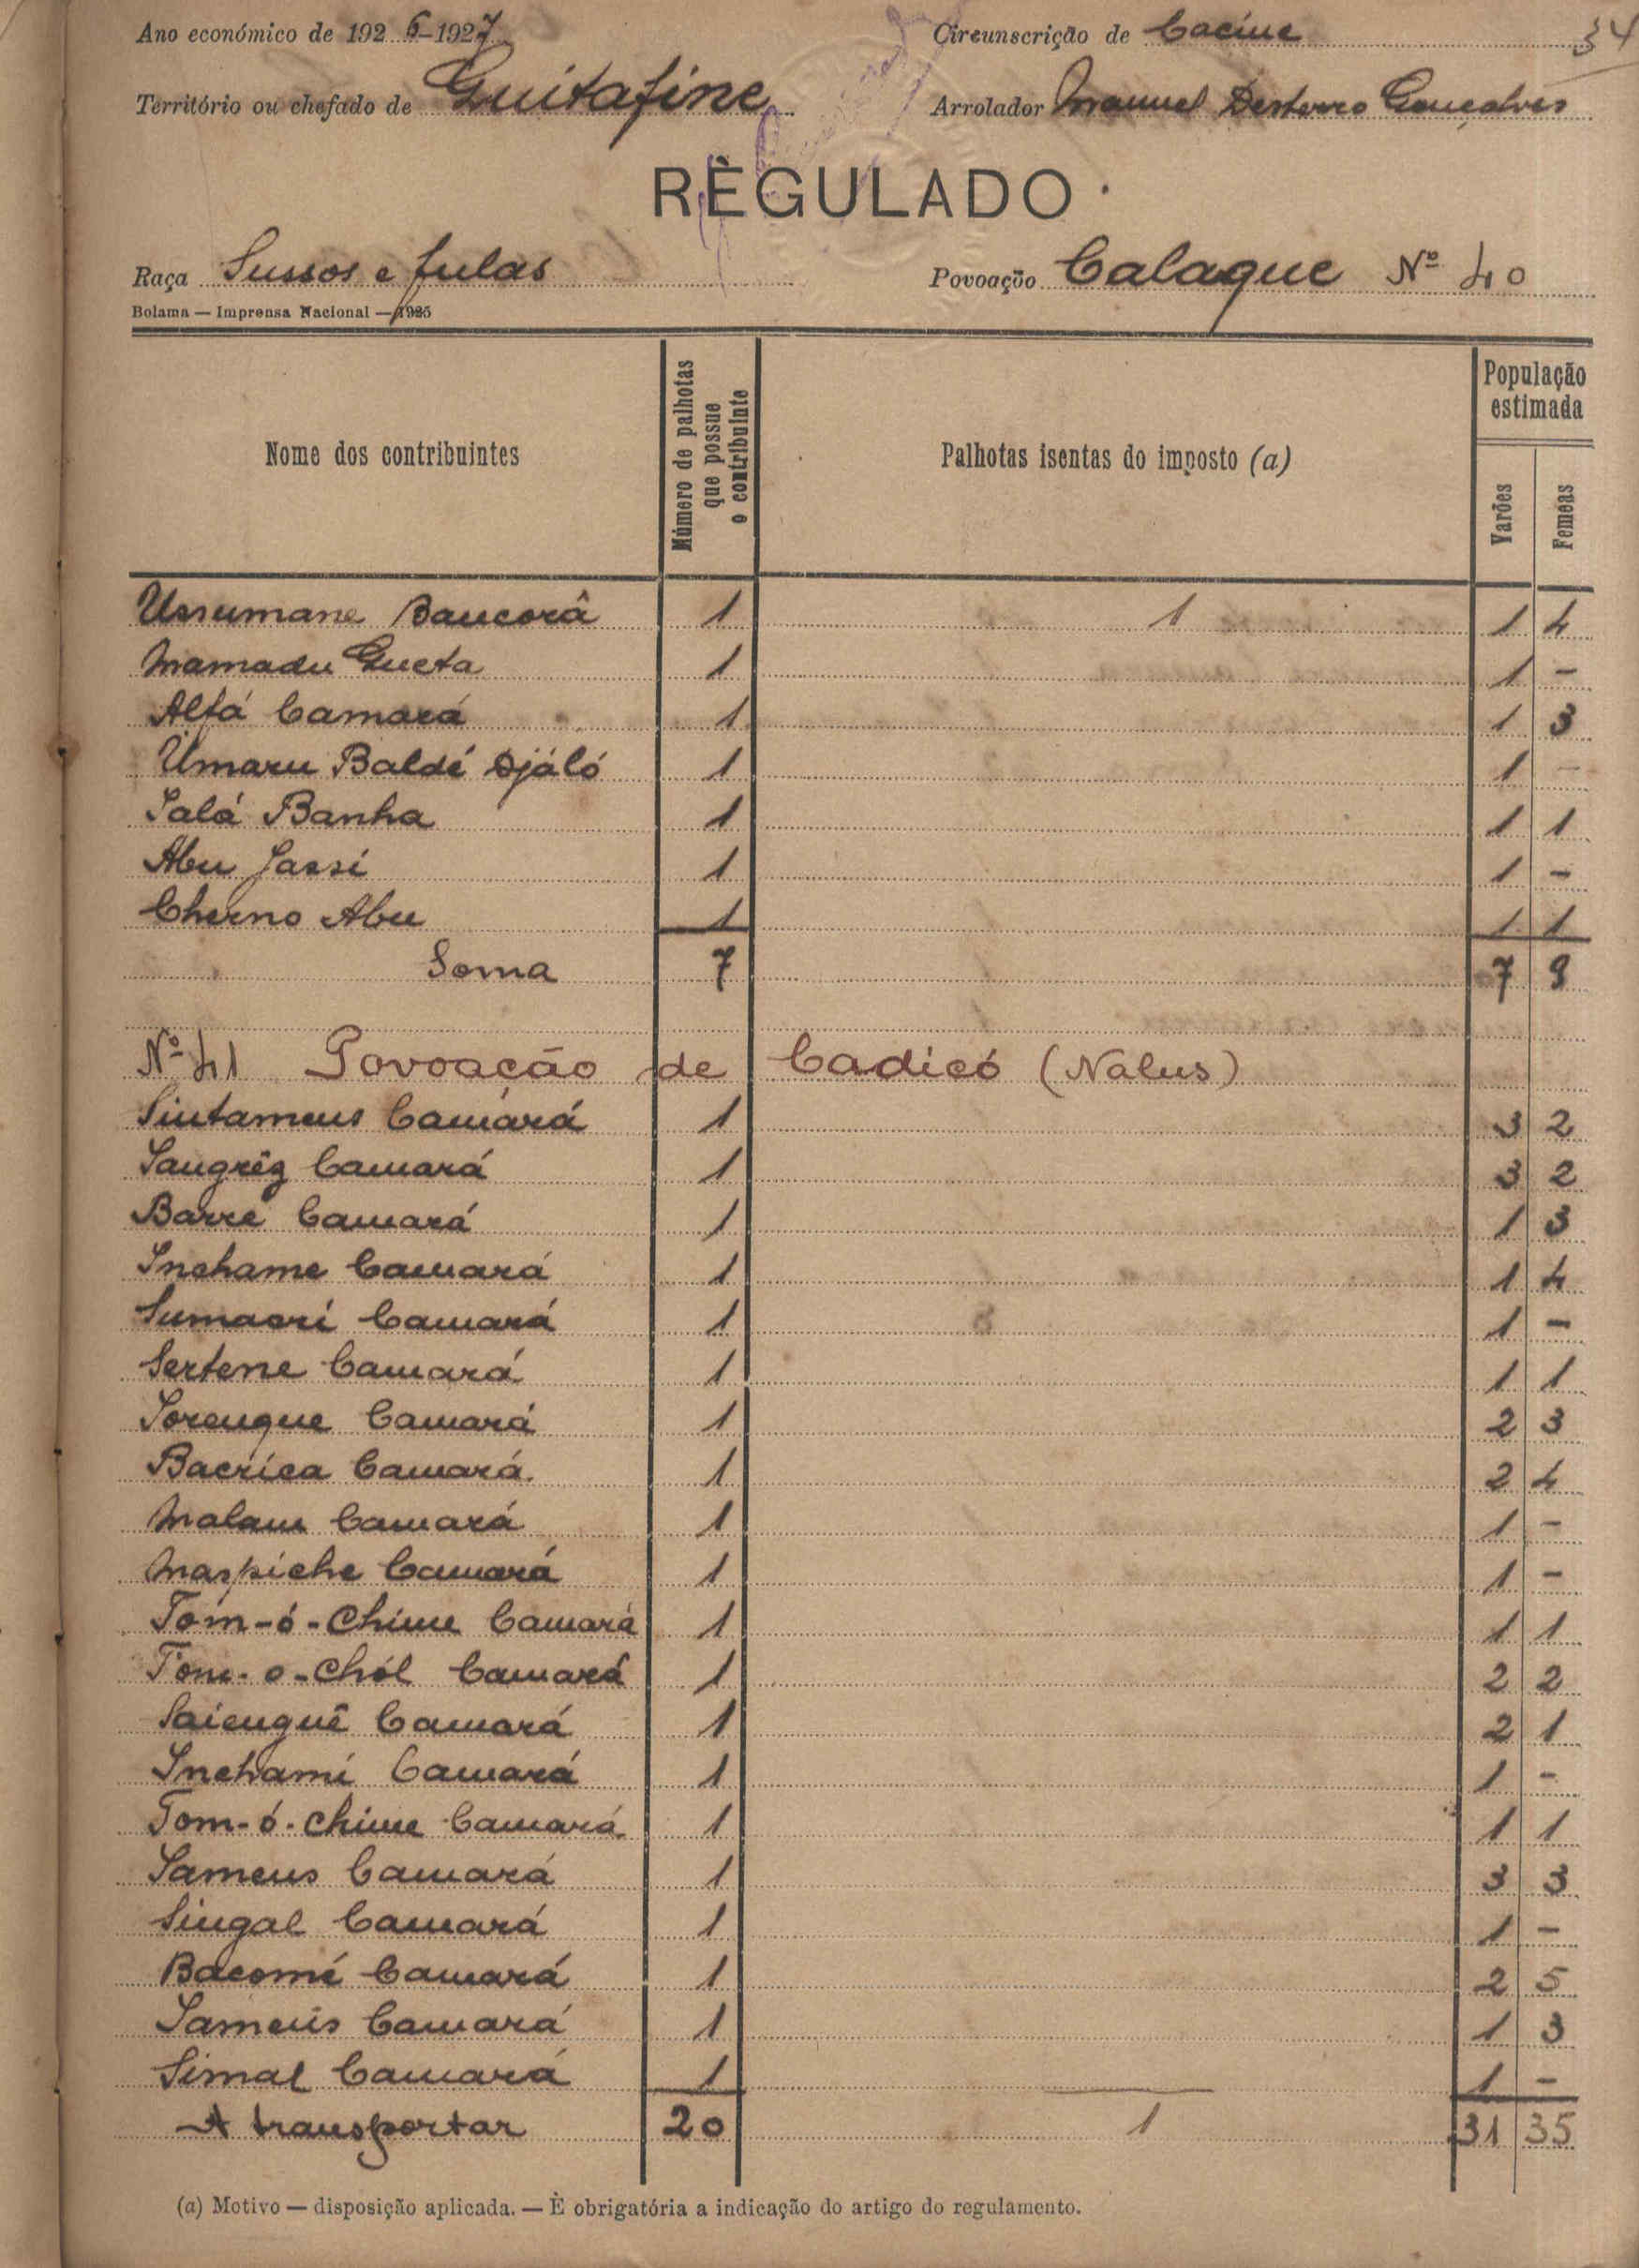 Ano económico de 1926-1927 Circunscrição de Cacine 34
Território ou chefado de Guitafine Arrolador Manuel Desterro Gonçalves
RÈGULADO
Raça Sussos e fulas Povoação Calaque Nº 40
Bolama — Imprensa Nacional — 1925
Nome dos contribuintes Número de palhotas que possue o contribuinte Palhotas isentas do imposto (a) População estimada Varões Femeas
Ussumane Bancorâ 1 1 1 4
Mamadu Gueta 1 1 -
Alfá Camará 1 1 3
Umaru Baldé Djáló 1 1 -
Salá Banha 1 1 1
Abu Jassi 1 1 -
Cherno Abu 1 1 1
Soma 7 7 9
Nº 41 Povoação de Cadicó (Nalus)
Sintameus Camará 1 3 2
Sangrêz Camará 1 3 2
Barré Camará 1 1 3
Inchame Camará 1 1 4
Sumaori Camará 1 1 -
Sertene Camará 1 1 1
Sorenque Camará 1 2 3
Bacrica Camará 1 2 4
Malam Camará 1 1 -
Maspiche Camará 1 1 -
Tom-ó-Chime Camará 1 1 1
Tom-o-Chól Camará 1 2 2
Saienguê Camará 1 2 1
Inchami Camará 1 1 -
Tom-ó-chime Camará 1 1 1
Sameus Camará 1 3 3
Singal Camará 1 1 -
Bacomé Camará 1 2 5
Sameús Camará 1 1 3
Simal Camará 1 1 -
A transportar 20 1 31 35
(a) Motivo — disposição aplicada. — È obrigatória a indicação do artigo do regulamento.